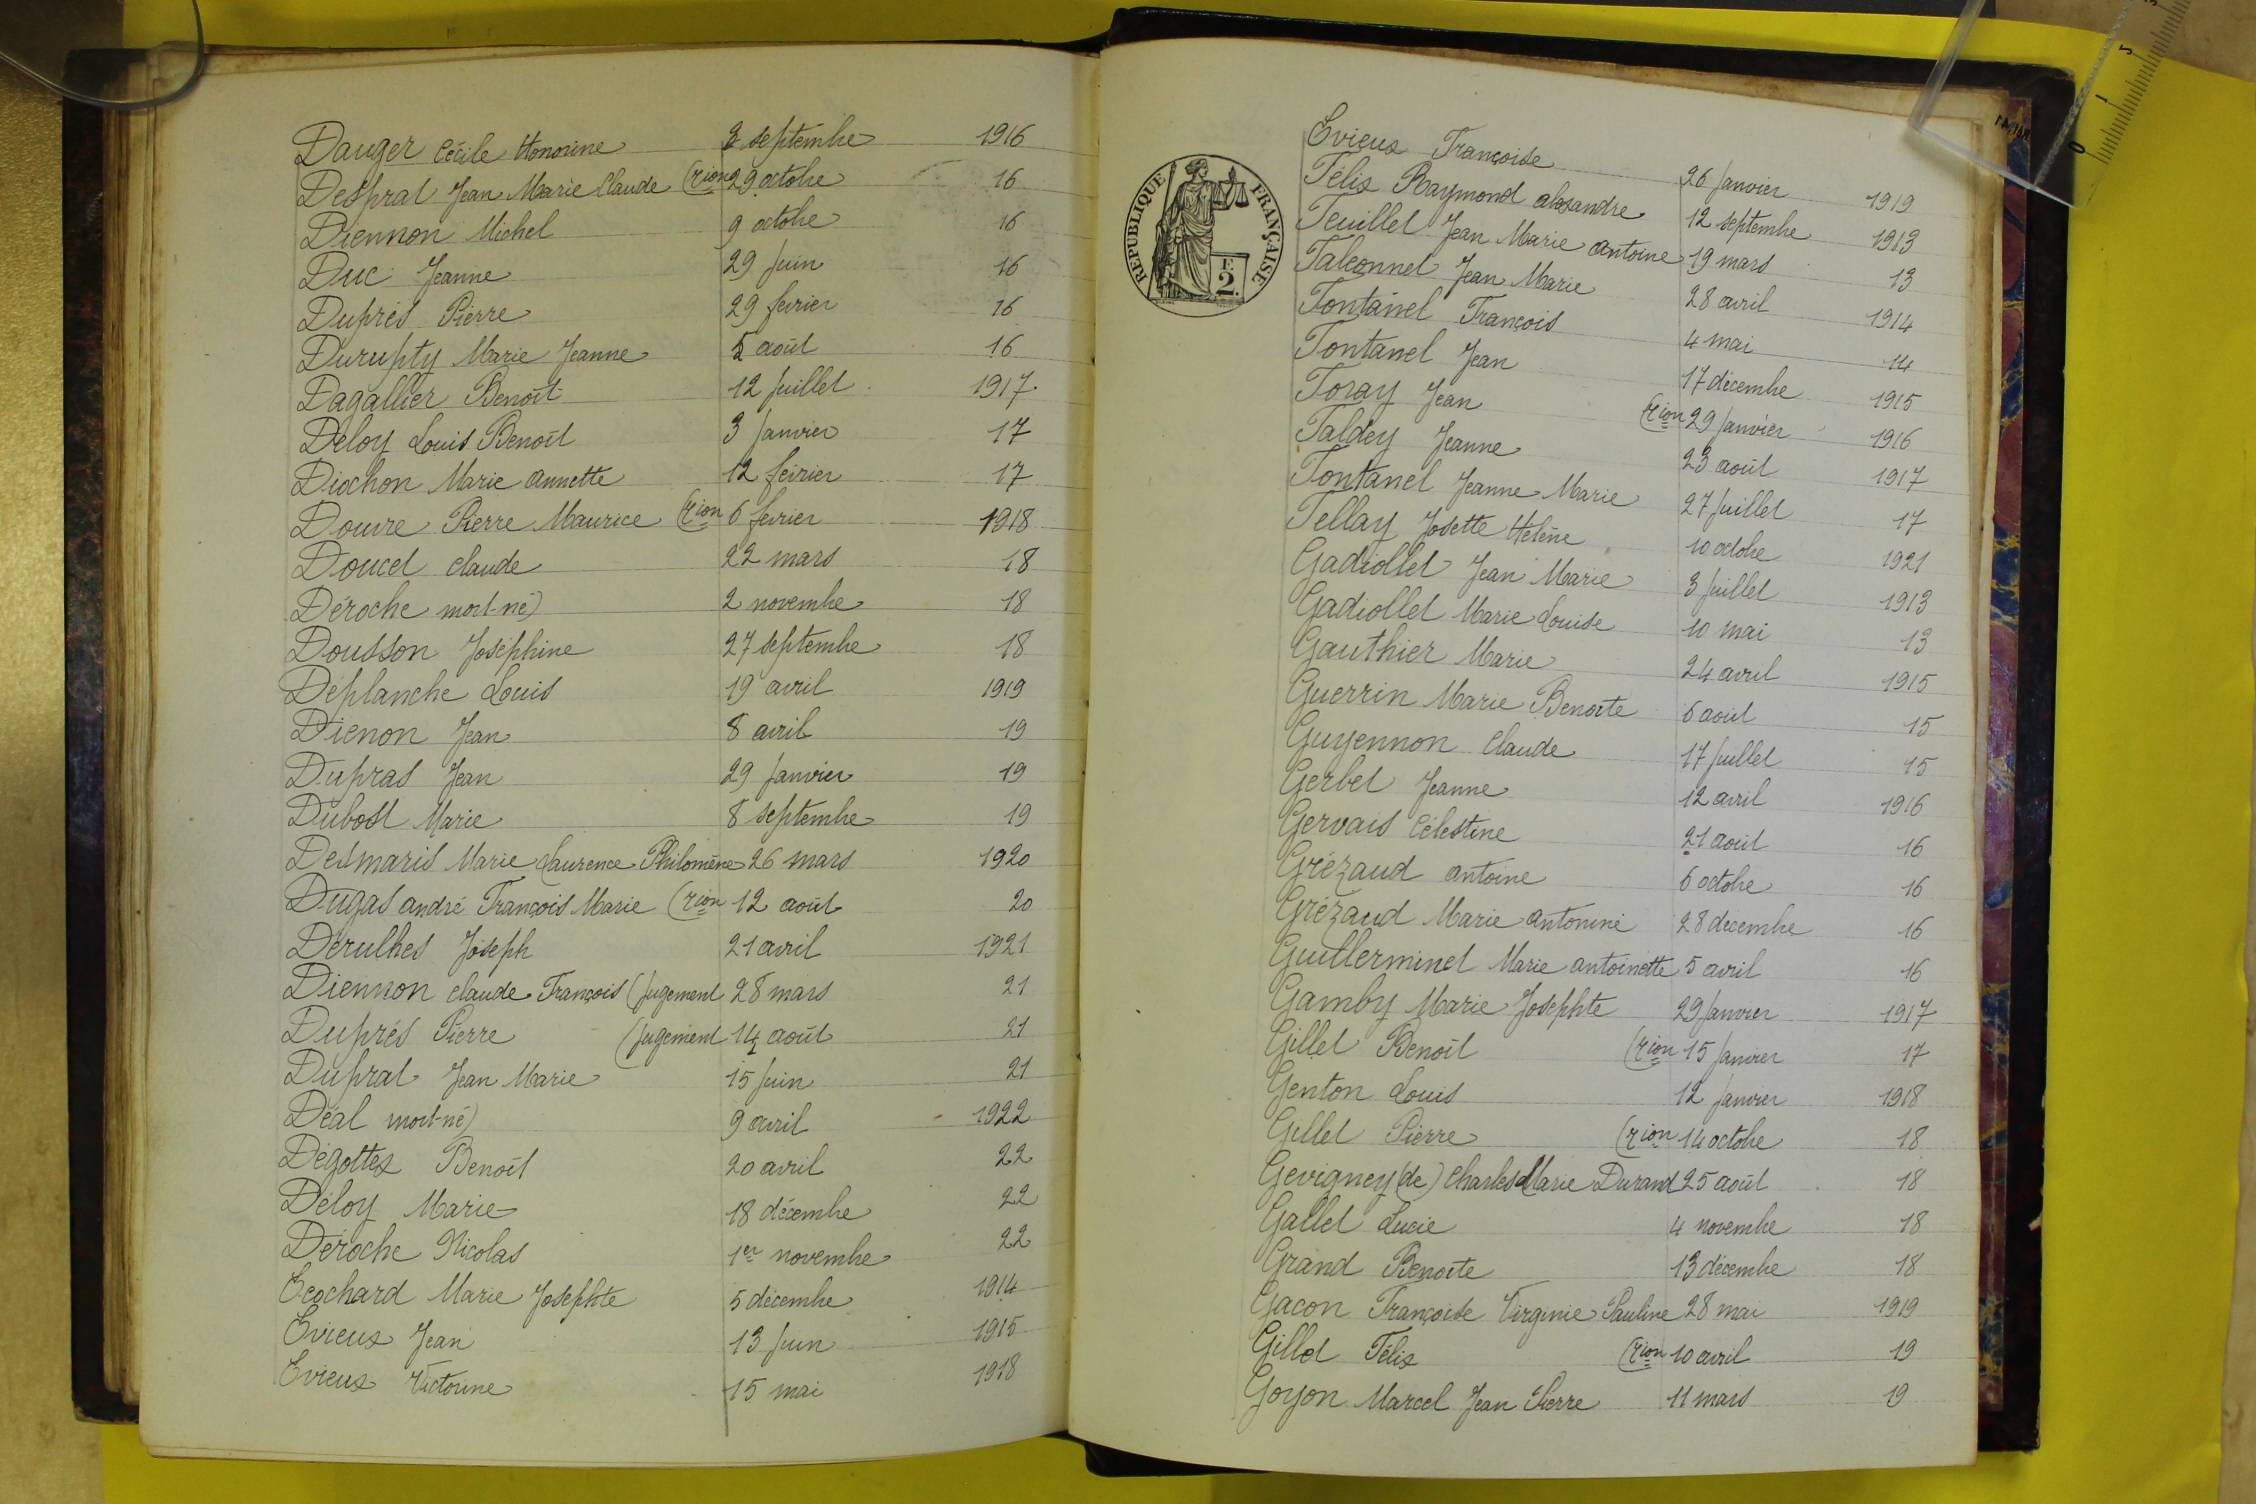 Dauger Cécile Honorine 2 septembre 1916
Desprat Jean Marie Claude (rion 29 octobre 16
Diennon Michel 9 octobre 16
Duc Jeanne 29 juin 16
Duprés Pierre 29 février 16
Durupty Marie Jeanne 5 août 16
Dagallier Benoît 12 juillet 1917
Déloy Louis Benoît 3 janvier 17
Diochon Marie Annette 12 février 17
Douvre Pierre Maurice (rion 6 février 1918
Doucet Claude 22 mars 18
Déroche mort-né) 2 novembre 18
Dousson Joséphine 27 septembre 18
Déplanche Louis 19 avril 1919
Dienon Jean 8 avril 19
Dupras Jean 29 janvier 19
Dubost Marie 8 septembre 19
Desmaris Marie Laurence Philomène 26 mars 1920
Dugas André François Marie (rion 12 août 20
Derulhes Joseph 21 avril 1921
Diennon Claude François (jugement 28 mars 21
Duprés Pierre (jugement 14 août 21
Duprat Jean Marie 15 juin 21
Déal mort-né) 9 avril 1922
Dégottex Benoît 20 avril 22
Déloy Marie 18 décembre 22
Déroche Nicolas 1er novembre 22
Ecochard Marie Josephte 5 décembre 1914
Evieux Jean 13 juin 1915
Evieux Victorine 15 mai 1918
REPUBLIQUE FRANÇAISE
F.
2.
Evieux Françoise 26 janvier 1919
Félix Raymond Alexandre 12 septembre 1913
Feuillet Jean Marie Antoine 19 mars 13
Falconnet Jean Marie 28 avril 1914
Fontanel François 4 mai 14
Fontanel Jean 17 décembre 1915
Foray Jean (rion 29 janvier 1916
Faldey Jeanne 23 août 1917
Fontanel Jeanne Marie 27 juillet 17
Fellay Josette Hélène 10 octobre 1921
Gadiollet Jean Marie 3 juillet 1913
Gadiollet Marie Louise 10 mai 13
Gauthier Marie 24 avril 1915
Guerrin Marie Benoite 6 août 15
Guyennon Claude 17 juillet 15
Gerbet Jeanne 12 avril 1916
Gervais Célestine 21 août 16
Grézaud Antoine 6 octobre 16
Grézaud Marie Antonine 28 décembre 16
Guillerminet Marie Antoinette 5 avril 16
Gamby Marie Josephte 29 janvier 1917
Gillet Benoît (rion 15 janvier 17
Genton Louis 12 janvier 1918
Gillet Pierre (rion 14 octobre 18
Gevigney (de) Charles Marie Durand 25 août 18
Gallet Lucie 4 novembre 18
Grand Benoite 13 décembre 18
Gacon Françoise Virginie Pauline 28 mai 1919
Gillet Félix (rion 10 avril 19
Goyon Marcel Jean Pierre 11 mars 19